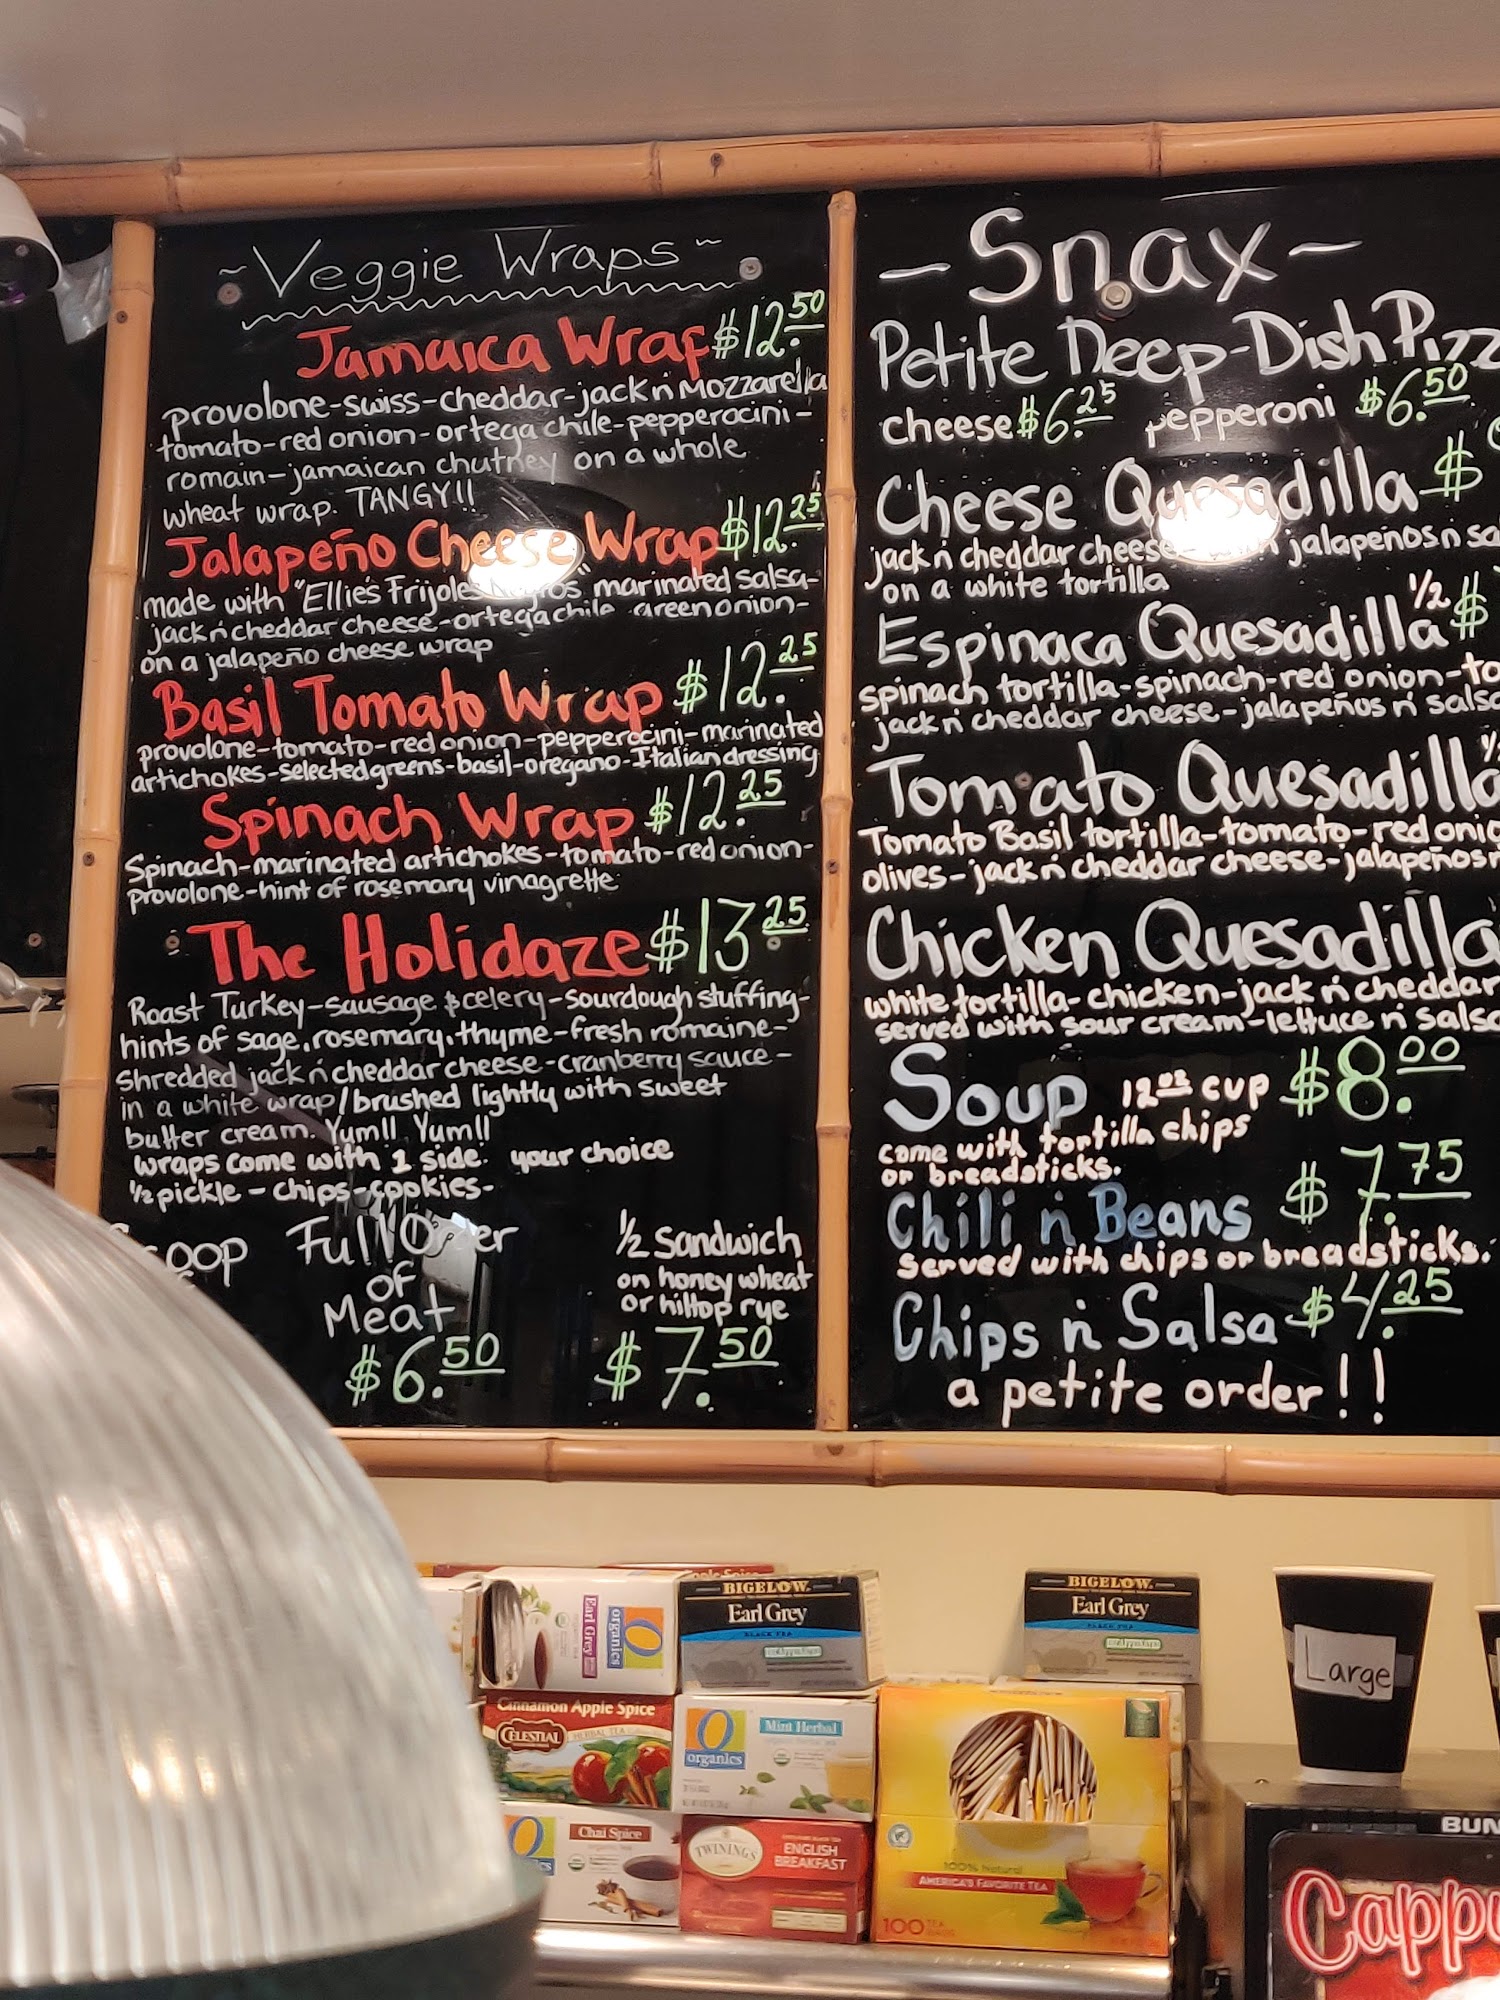 ~Veggie Wraps~
Jamaica Wrap $12.50
provolone-swiss-cheddar-jack n' Mozzarella
tomato-red onion-ortega chile-pepperocini-
romain-jamaican chutney on a whole
wheat wrap. TANGY!!
Jalapeño Cheese Wrap $12.25
made with "Ellie's Frijoles Negros" marinated salsa-
jack n' cheddar cheese-ortega chile green onion-
on a jalapeño cheese wrap
Basil Tomato Wrap $12.25
provolone-tomato-red onion-pepperocini-marinated
artichokes-selected greens-basil-oregano-Italian dressing
Spinach Wrap $12.25
Spinach-marinated artichokes-tomato-red onion-
provolone-hint of rosemary vinagrette
The Holidaze $13.25
Roast Turkey-sausage & celery-sourdough stuffing-
hints of sage.rosemary.thyme-fresh romaine-
shredded jack n' cheddar cheese-cranberry sauce-
in a white wrap/brushed lightly with sweet
butter cream. Yum!! Yum!!
wraps come with 1 side. your choice
1/2 pickle - chips-cookies-
Full Order
of
Meat
$6.50
1/2 sandwich
on honey wheat
or hilltop rye
$7.50
-Snax-
Petite Deep-Dish Pizz
cheese $6.25 pepperoni $6.50
Cheese Quesadilla $
jack n' cheddar cheese- with jalapeños n' sa
on a white tortilla
Espinaca Quesadilla 1/2 $
spinach tortilla-spinach-red onion-to
jack n' cheddar cheese-jalapeños n' salsa
Tomato Quesadilla
Tomato Basil tortilla-tomato-red onio
olives-jack n' cheddar cheese-jalapeños n
Chicken Quesadilla
white tortilla-chicken-jack n' cheddar
served with sour cream-lettuce n' salsa
Soup 12 oz cup $8.00
come with tortilla chips
or breadsticks.
Chili n' Beans $7.75
served with chips or breadsticks.
Chips n' Salsa $4.25
a petite order!!
Earl Grey
organics
BIGELOW
Earl Grey
BLACK TEA
BIGELOW
Earl Grey
BLACK TEA
Large
Cinnamon Apple Spice
CELESTIAL
HERBAL TEA
O
organics
Mint Herbal
Chai Spice
TWININGS
ENGLISH
BREAKFAST
100% Natural
AMERICA'S FAVORITE TEA
100 TEA
BUN
Cappu